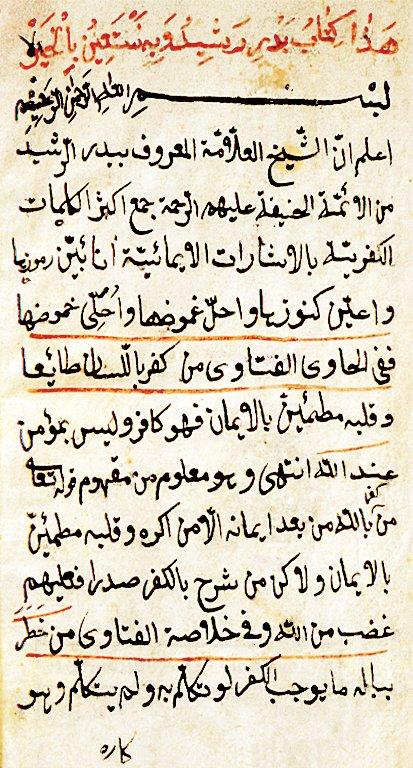 هذا كتاب بدر رشيد وبه نستعين بالخير
بسم الله الرحمن الرحيم
اعلم انّ الشّيخ العلاّمة المعروف ببدر الرّشيد
من الائمّة الحنيفة عليهم الرّحمة جمع اكثر الكلمات
الكفريّة بالاشارات الايمائيّة انا ابيّن رموزها
واعيّن كنوزها واحلّ غموضها واُحلّى غموضها
ففى الحاوى الفتاوى من كفر باللّسان طائعا
وقلبه مطمئنّ بالايمان فهو كافر وليس بمؤمن
عند اللّه انتهى وهو معلوم من مفهوم قوله تعالى
من كفر باللّه من بعد ايمانه الّا من اكره وقلبه مطمئنّ
بالايمان ولاكن من شرح بالكفر صدرا فعليهم
غضب من اللّه وفى خلاصة الفتاوى من خطر
بباله ما يوجب الكفر لو تكلّم به ولم يتكلّم وهو
كاره